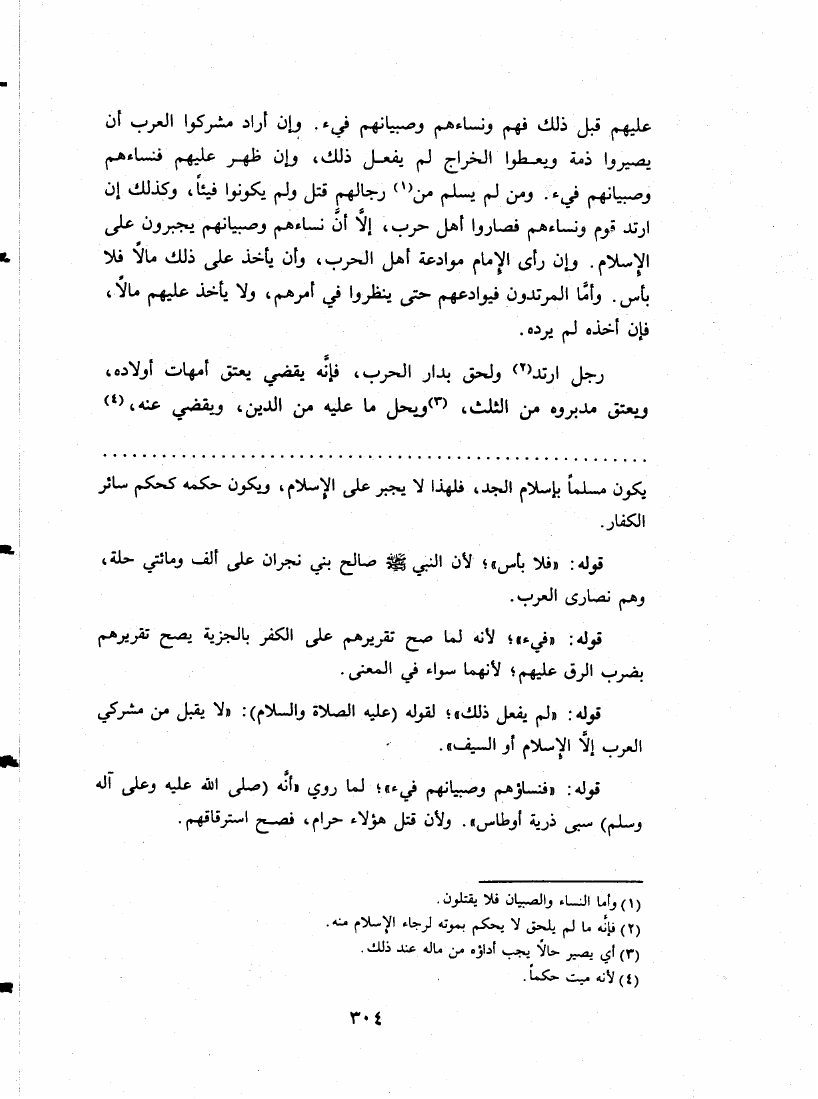 عليهم قبل ذلك فهم ونساءهم وصبيانهم فيء. وإن أراد مشركوا العرب أن
يصيروا ذمة ويعطوا الخراج لم يفعل ذلك، وإن ظهر عليهم فنساءهم
وصبيانهم فيء. ومن لم يسلم من(١) رجالهم قتل ولم يكونوا فيئاً، وكذلك إن
ارتد قوم ونساءهم فصاروا أهل حرب، إلَّا أنَّ نساءهم وصبيانهم يجبرون على
الإسلام. وإن رأى الإمام موادعة أهل الحرب، وأن يأخذ على ذلك مالاً فلا
بأس. وأمَّا المرتدون فيوادعهم حتى ينظروا في أمرهم، ولا يأخذ عليهم مالاً،
فإن أخذه لم يرده.
رجل ارتد(٢) ولحق بدار الحرب، فإنَّه يقضي يعتق أمهات أولاده،
ويعتق مدبروه من الثلث، (٣)ويحل ما عليه من الدين، ويقضي عنه،(٤)
يكون مسلماً بإسلام الجد، فلهذا لا يجبر على الإسلام، ويكون حكمه كحكم سائر
الكفار.
قوله: «فلا بأس»؛ لأن النبي ﷺ صالح بني نجران على ألف ومائتي حلة،
وهم نصارى العرب.
قوله: «فيء»؛ لأنه لما صح تقريرهم على الكفر بالجزية يصح تقريرهم
بضرب الرق عليهم؛ لأنهما سواء في المعنى.
قوله: «لم يفعل ذلك»؛ لقوله (عليه الصلاة والسلام): «لا يقبل من مشركي
العرب إلَّا الإسلام أو السيف».
قوله: «فنساؤهم وصبيانهم فيء»؛ لما روي «أنَّه (صلى الله عليه وعلى آله
وسلم) سبى ذرية أوطاس». ولأن قتل هؤلاء حرام، فصح استرقاقهم.
(١) وأما النساء والصبيان فلا يقتلون.
(٢) فإنه ما لم يلحق لا يحكم بموته لرجاء الإسلام منه.
(٣) أي يصير حالاً يجب أداؤه من ماله عند ذلك.
(٤) لأنه ميت حكماً.
٣٠٤